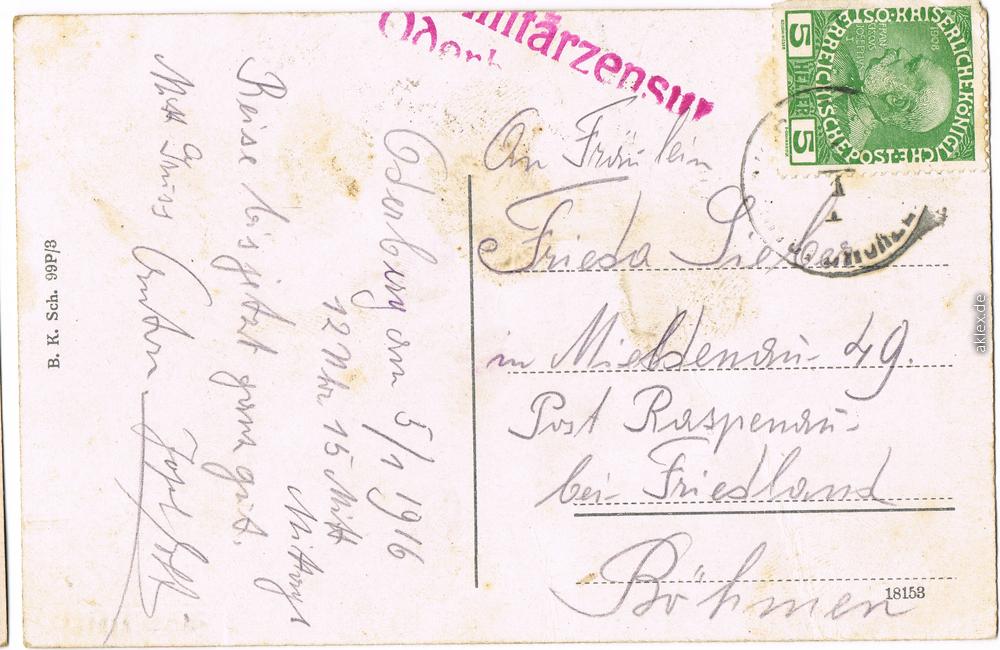 Militärzensur
Oderb
KAISERLICHE KÖNIGLICHE ÖSTERREICHISCHE POST
1908
5 HELLER 5
An Fräulein
Frieda Sieber
in Mildenau 49.
Post Raspenau
bei Friedland
Böhmen
18153
Oderberg am 5/1 1916
12 Uhr 15 Mitt
Mittwoch
Reise bis jetzt ganz gut.
Mit Gruss Anton
B. K. Sch. 99P/3
aklex.de